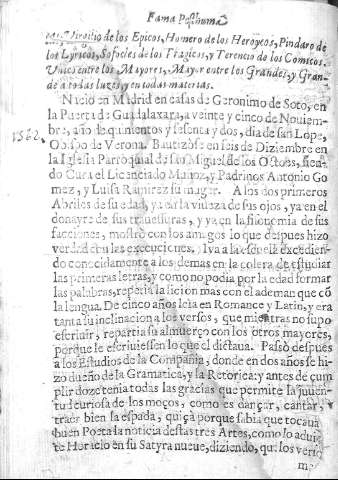 Fama Posthuma
Virgilio de los Epicos, Homero de los Heroycos, Pindaro de
los Lyricos, Sofocles de los Tragicos, y Terencio de los Comicos.
Vnico entre los Mayores, Mayor entre los Grandes, y Gran-
de a todas luzes, y en todas materias.
Nacio en Madrid en casas de Geronimo de Soto, en
la Puerta de Guadalaxara, a veinte y cinco de Nouiem-
1562.
bre, año de quinientos y sesenta y dos, dia de san Lope,
Obispo de Verona. Bautizòse en seis de Diziembre en
la Iglesia Parroquial de san Miguel de los Octoes, sien-
do Cura el Licenciado Muñoz, y Padrinos Antonio Go
mez, y Luisa Ramirez su muger. A los dos primeros
Abriles de su edad, ya en la viueza de sus ojos, ya en el
donayre de sus trauessuras, y ya en la fisonomia de sus
facciones, mostrò con los amagos lo que despues hizo
verdad con las execuciones. Iva a la escuela excedien-
do conocidamente a los demas en la colera de estudiar
las primeras letras, y como no podia por la edad formar
las palabras, repetia la licion mas con el ademan que cõ
la lengua. De cinco años leia en Romance y Latin, y era
tanta su inclinacion a los versos, que mientras no supo
escriuir, repartia su almuerço con los otros mayores,
porque le escriuiessen lo que el dictaua. Passò despues
a los Estudios de la Compañia, donde en dos años se hi-
zo dueño de la Gramatica, y la Retorica: y antes de cum
plir doze tenia todas las gracias que permite la juuen-
tud curiosa de los moços, como es dançar, cantar, y
traer bien la espada, quiçà porque sabia que tocaua
buen Poeta la noticia destas tres Artes, como lo aduir-
te Horacio en su Satyra nueue, diziendo, que los verso
me